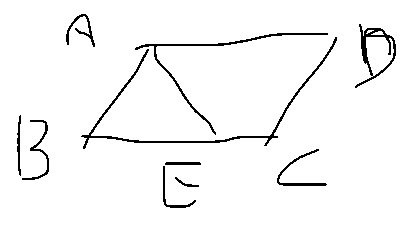 A D
B E C